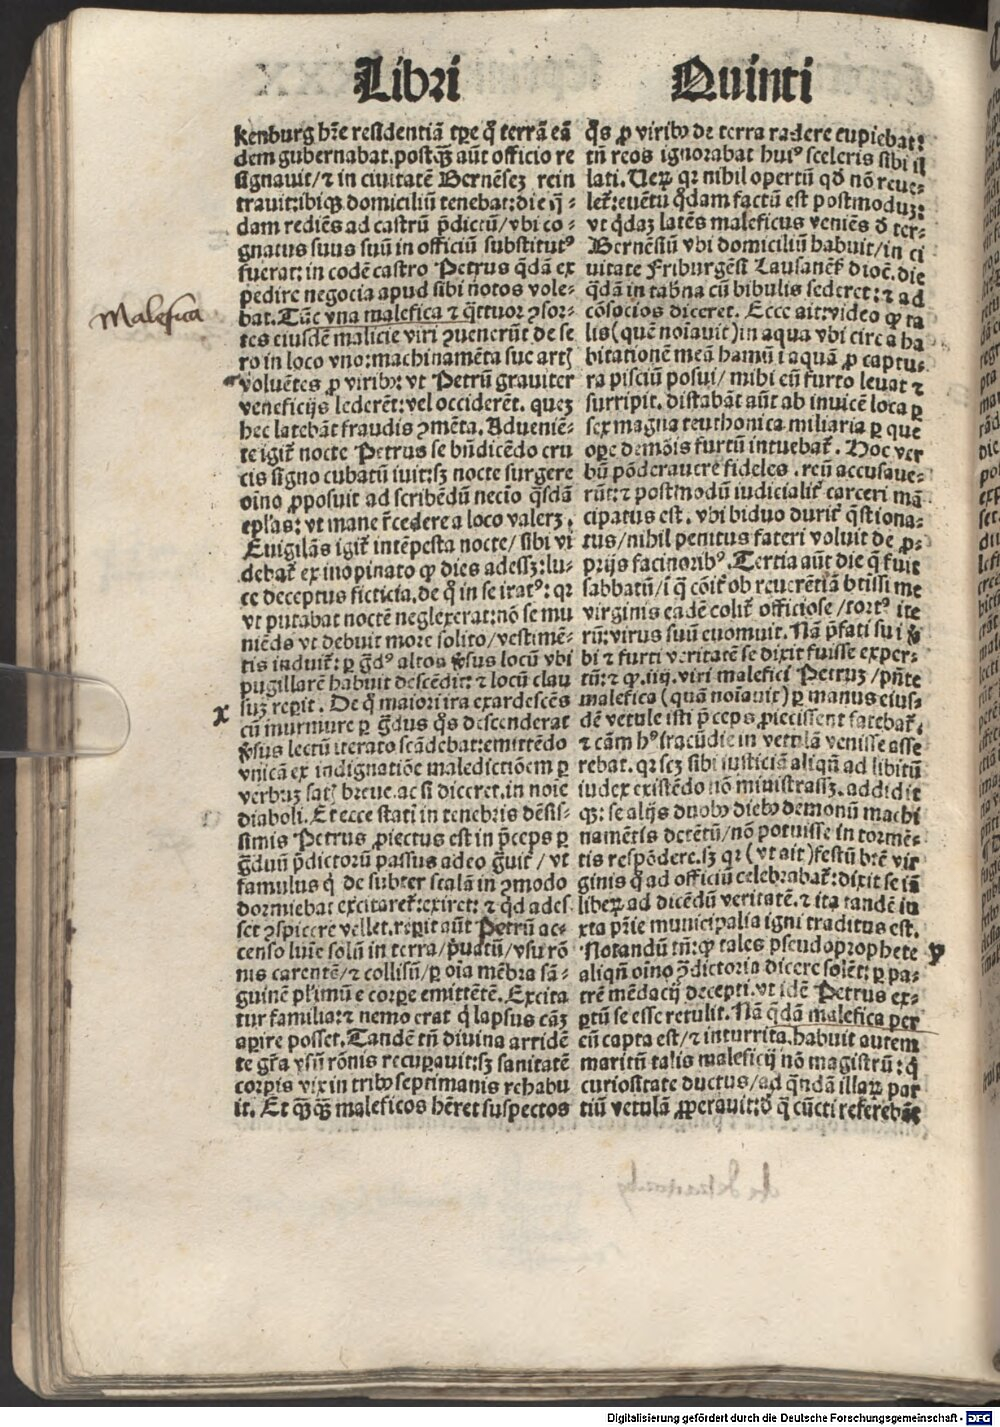 Libri Quinti
kenburg hr̄e residentiā tꝑe q̄ terrā eā
dem gubernabat. postꝙ̄ aūt officio re
signauit / ⁊ in ciuitatē Bernēseꝫ rein
trauit: ibiqꝫ domiciliū tenebat: die q̄ ⸗
dam rediēs ad castrū p̄dictū / vbi co ⸗
gnatus suus suū in officiū substitutꝰ
fuerat: in eodē castro Petrus q̄dā ex
pedire negocia apud sibi notos vole⸗
bat. Tūc vna malefica ⁊ q̄ttuor ꝯsor⸗
tes eiusdē malicie viri ꝯuenerūt de se
ro in loco vno: machinamēta sue artꝭ
voluētes ꝓ viribꝫ: vt Petrū grauiter
veneficijs lederēt: vel occiderēt. queꝫ
hec latebāt fraudis ꝯmēta. Adueniē⸗
te igit̄ nocte Petrus se bn̄dicēdo cru
cis signo cubatū iuit: sꝫ nocte surgere
oīno ꝓposuit ad scribēdū necīo q̄sdā
epl̄as: vt mane r̄cedere a loco valerꝫ.
Euigilās igit̄ intēpesta nocte / sibi vi
debat̄ ex inopinato ꝙ dies adessꝫ: lu⸗
ce deceptus ficticia. de q̄ in se iratꝰ: qꝛ
vt putabat noctē neglexerat: nō se mu
niēdo vt debuit more solito / vestimē⸗
tis induit̄: ꝑ ḡdꝰ altos v̄sus locū vbi
pugillarē habuit descēdit: ⁊ locū clau
suꝫ reꝑit. De q̄ maiori ira exardescēs
cū murmure ꝑ ḡdus q̄s descenderat
v̄sus lectū iterato scādebat: emittēdo
vnicā ex indignatiōe maledictiōem ꝑ
verbuꝫ satꝭ breue. ac si diceret. in noīe
diaboli. Et ecce stati in tenebris dēsis⸗
simis Petrus ꝓiectus est in p̄ceps ꝑ
ḡduū p̄dictorū passus adeo ḡuit̄ / vt
famulus q̇ de subter scalā in ꝯmodo
dormiebat excitaret̄: exiret: ⁊ q̇d ades
set ꝯspicere vellet. reꝑit aūt Petrū ac⸗
censo luīe solū in terra / p̄uatū / vsu rō
nis carentē / ⁊ collisū / ꝑ oīa mēbra sā⸗
guinē pl̄imū e corꝑe emittētē. Excita
tur familia: ⁊ nemo erat q̇ lapsus cāꝫ
aꝑire posset. Tandē tn̄ divina arridē
te gr̄a vsū rōnis recuꝑauit: sꝫ sanitatē
corꝑis vix in tribꝰ septimanis rehabu
it. Et ꝙ̄ꝙ̄ maleficos hēret suspectos
q̄s ꝓ viribꝰ de terra radere cupiebat:
tn̄ reos ignorabat huiꝰ sceleris sibi il
lati. Veꝝ qꝛ nihil opertū qd̄ nō reue⸗
let̄: euētu q̄dam factū est postmoduꝫ:
vt q̇daꝫ latēs maleficus veniēs ð ter⸗
Bernēsiū vbi domiciliū habuit / in ci
uitate Friburgēsi Lausanēs̄ dioc̄. die
q̄dā in tab̄na cū bibulis sederet: ⁊ ad
cōsocios diceret. Ecce ait: video ꝙ ta
lis (quē noīauit) in aqua vbi circa ha
bitationē meā hamū ī aquā ꝓ captu⸗
ra pisciū posui / mihi eū furto leuat ⁊
surripit. distabāt aūt ab inuicē loca ꝑ
sex magna teuthonica miliaria ꝑ que
oꝑe demōis furtū intuebat̄. Hoc ver
bū pōderauere fideles. reū accusaue⸗
rūt: ⁊ postmodū iudicialit̄ carceri mā
cipatus est. vbi biduo durit̄ q̄stiona⸗
tus / nihil penitus fateri voluit de ꝓ⸗
prijs facinoribꝰ. Tertia aūt die q̄ fuit
sabbatū / ī q̄ cōit̄ ob reuerētiā btīssime
virginis eadē colit̄ officiose / tortꝰ ite
rū: virus suū euomuit. Nā p̄fati sui v̄
bi ⁊ furti veritatē se dixit fuisse exper⸗
tū: ⁊ ꝙ .iiij. viri malefici Petruꝫ / pn̄te
malefica (quā noīauit) ꝑ manus eius⸗
dē vetule isti p̄ceps ꝓiecissent fatebat̄.
⁊ cām hꝰ iracūdie in vetulā venisse asse
rebat. qꝛ scꝫ sibi iusticiā aliqn̄ ad libitū
iudex existēdo nō ministrassꝫ. addidit
qꝫ: se alijs duobꝰ diebꝰ demonū machi
namētis detētū / nō potuisse in tormē⸗
tis respōdere. sꝫ qꝛ (vt ait) festū btē vir
ginis q̇ ad officiū celebrabat̄: dixit se iā
liberꝝ ad dicēdū veritatē. ⁊ ita tandē iu
xta pr̄ie municipalia igni traditus est.
Notandū tn̄: ꝙ tales pseudoprophete
aliqn̄ oīno ꝯdictoria dicere solēt: ꝑ pa⸗
trē mēdacij decepti. vt idē Petrus ex⸗
ꝑtū se esse retulit. Nā q̄dā malefica per
eū capta est / ⁊ inturrita. habuit autem
maritū talis maleficij nō magistrū: q̇
curiositate ductus / ad q̄ndā illaꝝ par
tiū vetulā ꝓꝑerauit: ð q̄ cūcti referebāt
Malefica
x
y
Digitalisierung gefördert durch die Deutsche Forschungsgemeinschaft - DFG